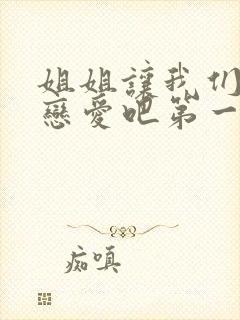 姐姐讓我们
戀愛吧第一
痴嗔